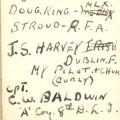 DOUG. KING - MLX.
STROUD - R.F.A.
J.S. HARVEY IRISH
DUBLIN. F.
MY PILOT & CHUM
(CURLY)
CPT.
C. W. BALDWIN
"A" Coy. 8th D.L.I.